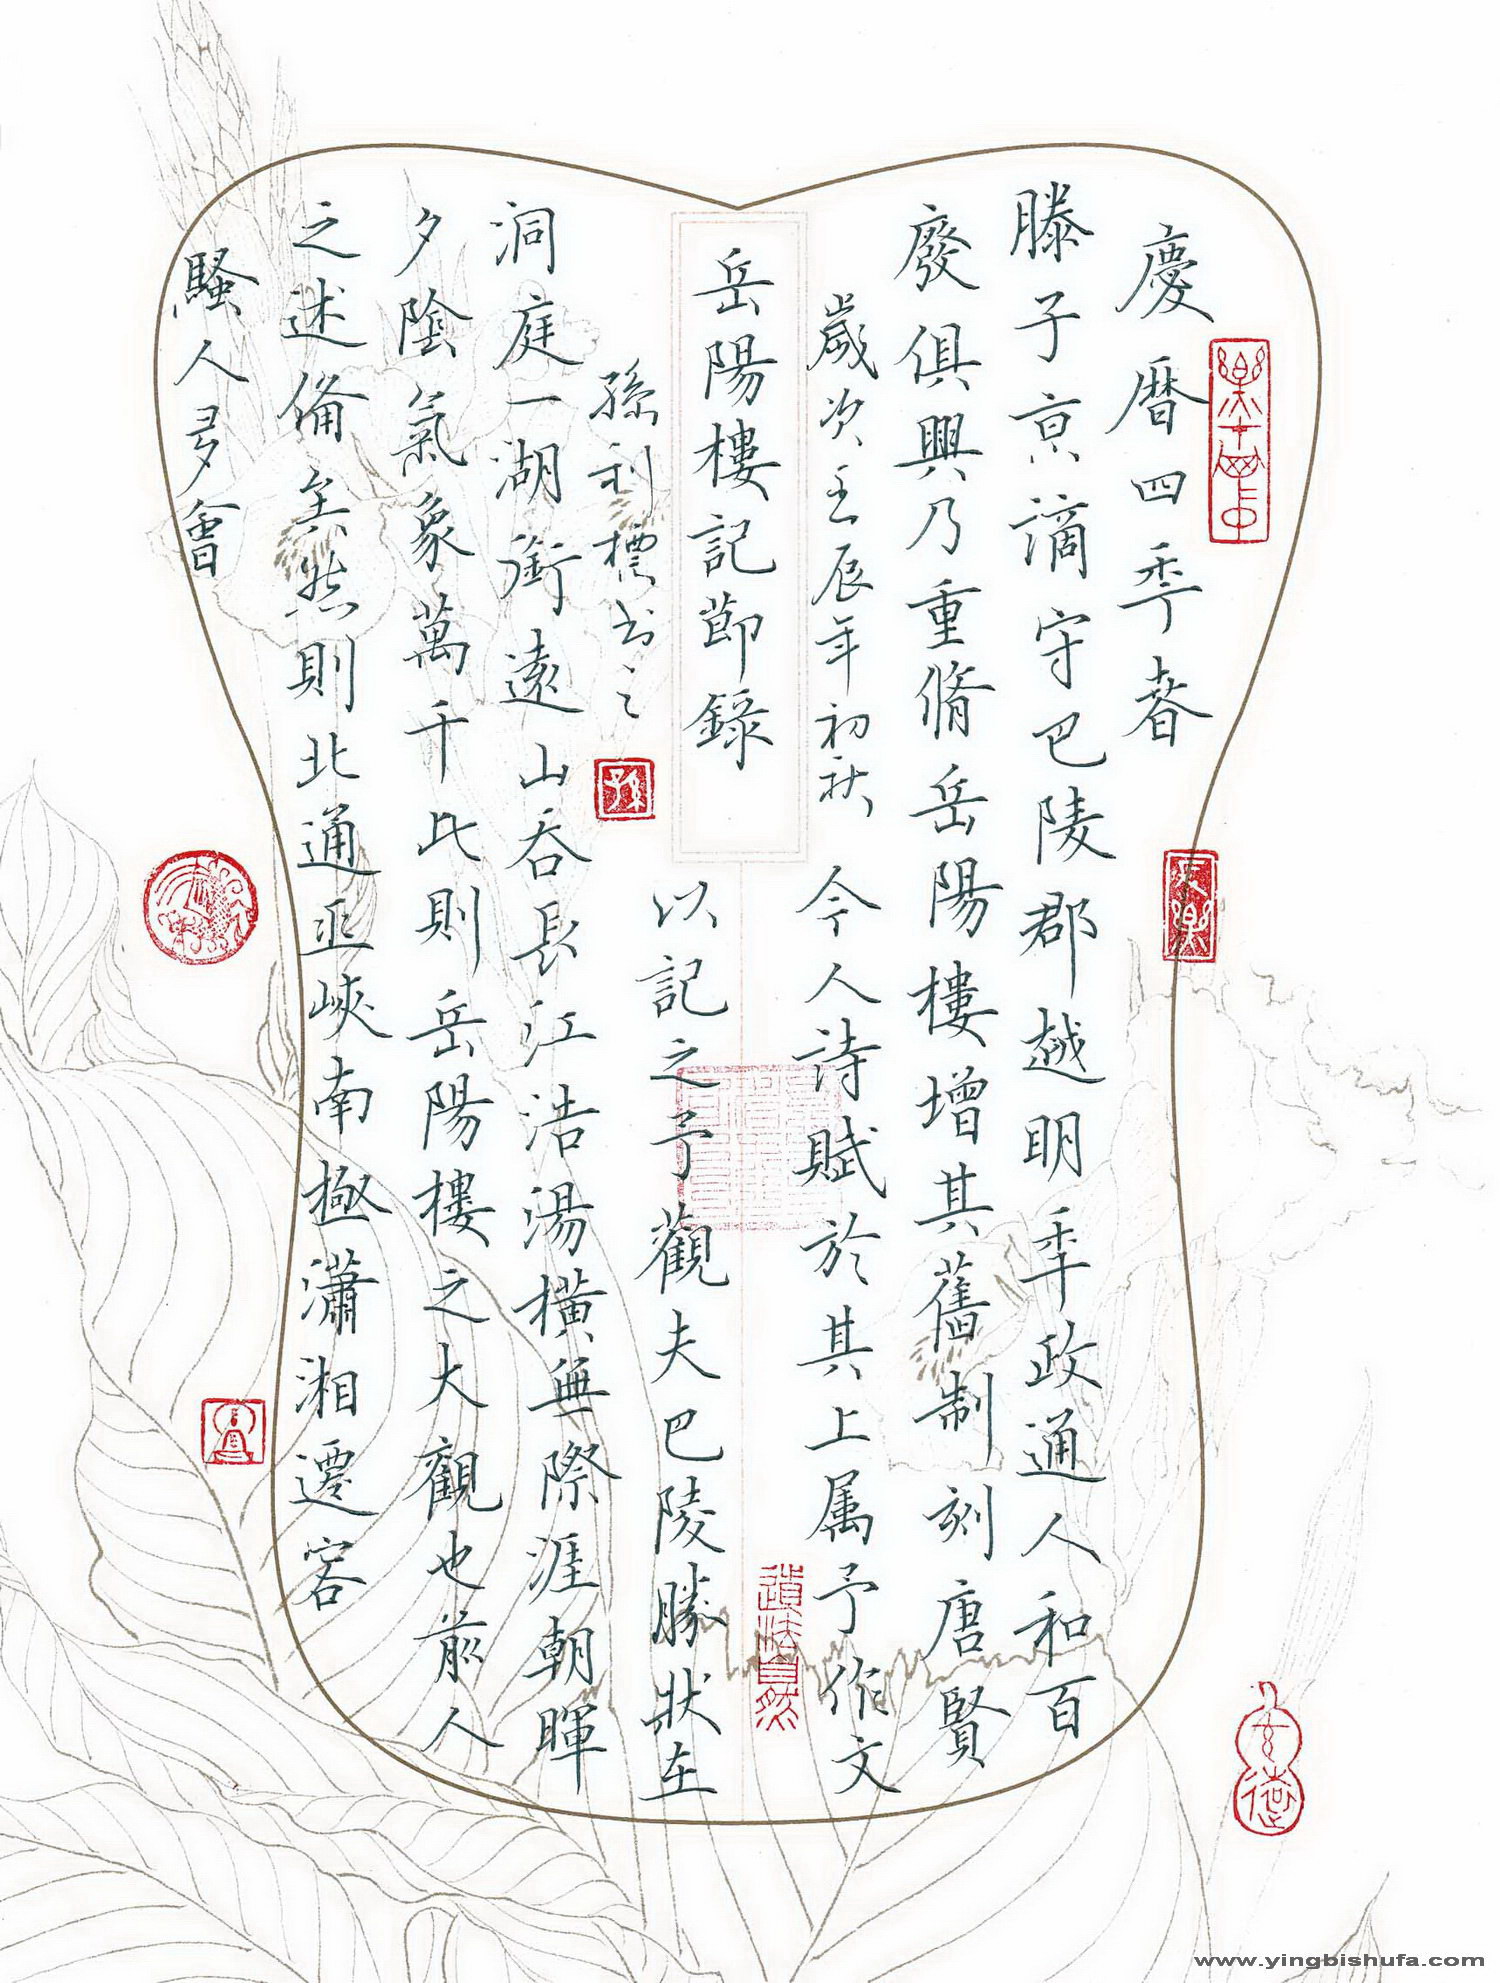 慶曆四年春
滕子京謫守巴陵郡越明年政通人和百
廢俱興乃重脩岳陽樓增其舊制刻唐賢
今人詩賦於其上属予作文
以記之予觀夫巴陵勝狀在
洞庭一湖銜遠山吞長江浩湯橫無際涯朝暉
夕陰氣象萬千此則岳陽樓之大觀也前人
之述備矣然則北通巫峽南極瀟湘遷客
騷人多會
岳陽樓記節錄
歲次壬辰年初秋
孫利標书之
道法自然
www.yingbishufa.com